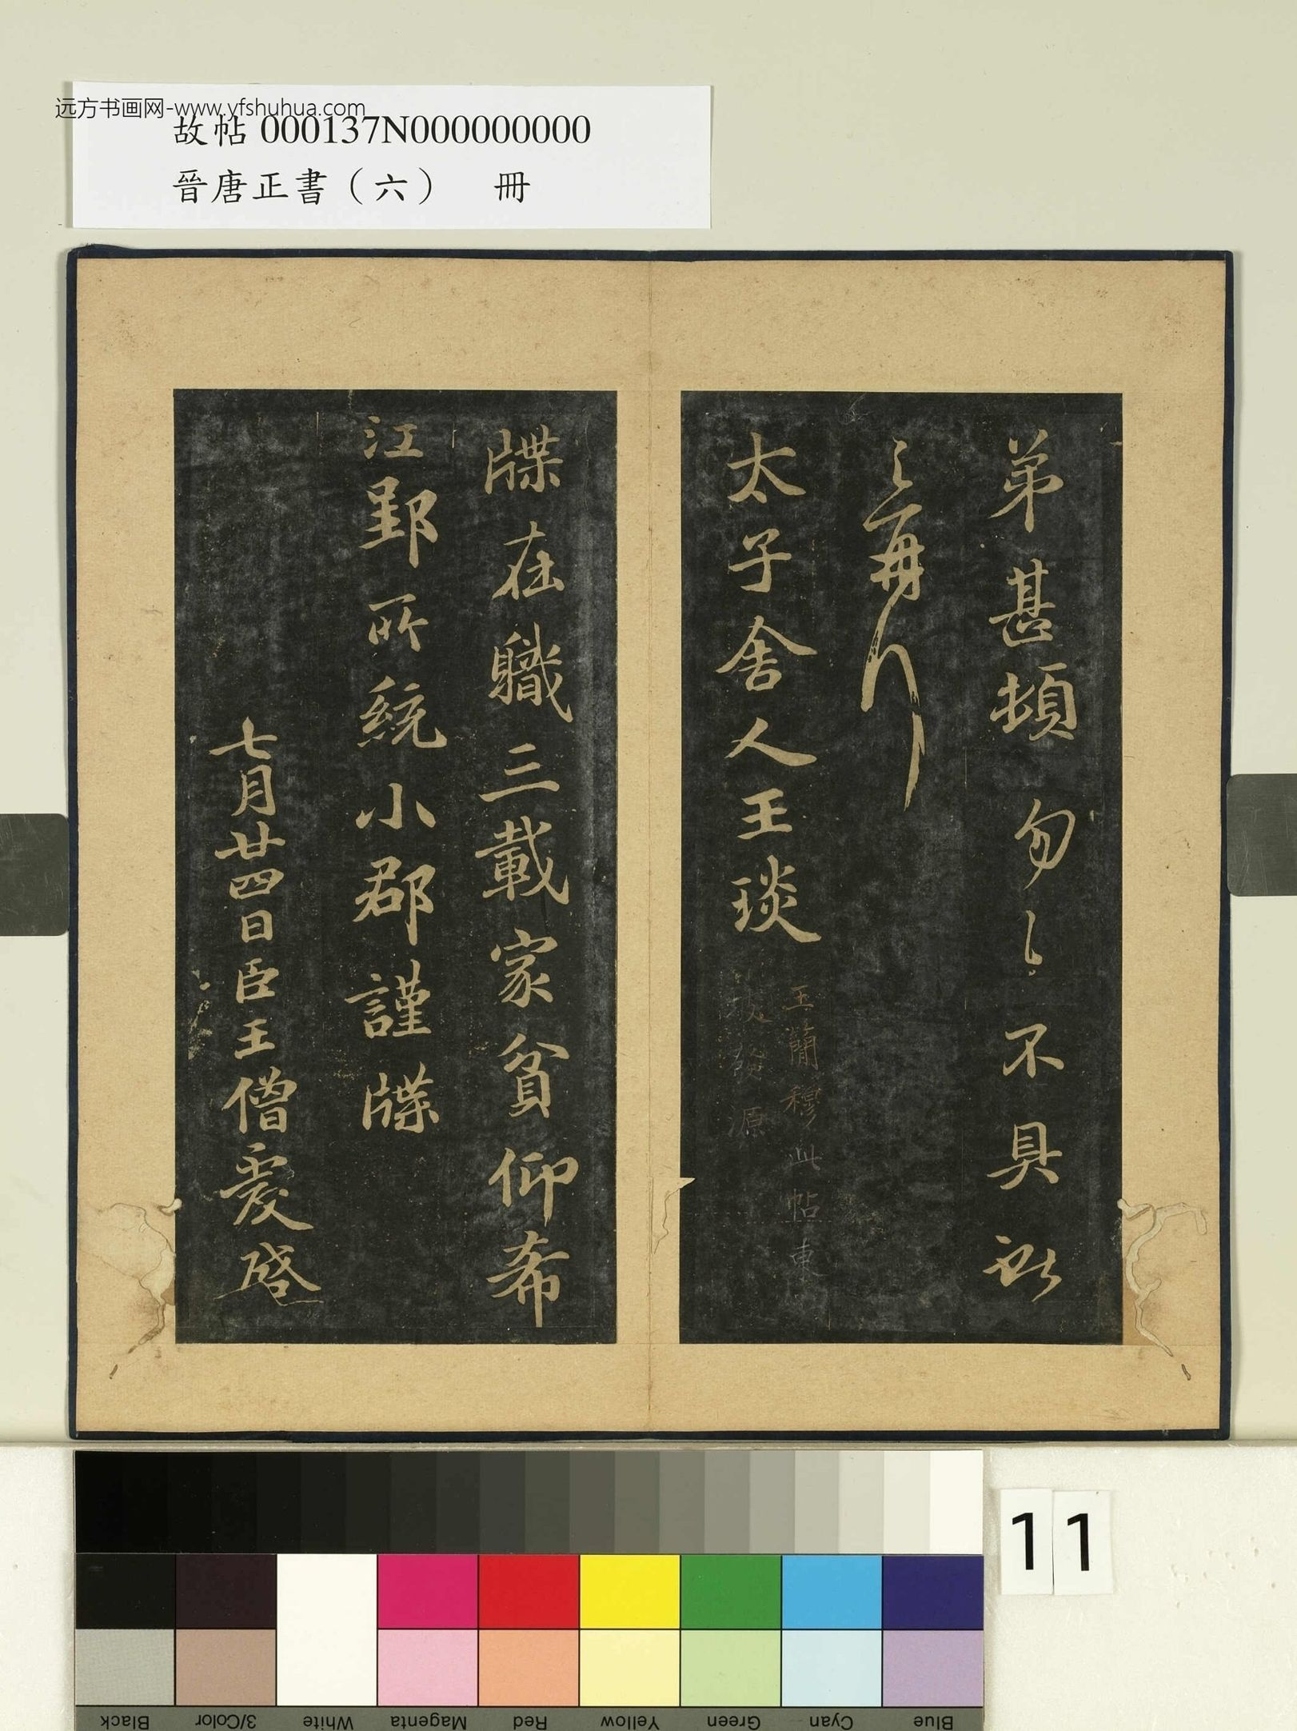 远方书画网-www.yfshuhua.com
故帖 000137N000000000
晉唐正書（六） 冊
弟甚頓勿〻不具
再
太子舍人王琰
玉蘭穆此帖東
源
牒在職三載家貧仰希
江郢所統小郡謹牒
七月廿四日臣王僧虔啓
11
Black
3/Color
White
Magenta
Red
Yellow
Green
Cyan
Blue